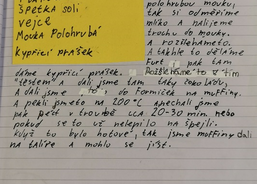 špetka soli
vejce
Mouka Polohrubá
kypřicí prášek
polohrubou mouku,
tak si odměříme
mlíko a nalijeme
trochu do mouky.
A rozšleháme to.
A takhle to děláme
Furt a pak tam
dáme kypřicí prášek. Rozšleháme to v tím
"těstem" a dali jsme tam
A dali jsme to do formiček na muffiny.
A pekli jsme to na 200°C a nechali jsme
pak péct v troubě cca 20-30 min nebo
pokud se to už nelepilo na špejli.
když to bylo hotové, tak jsme muffiny dali
na talíře a mohlo se jíst.